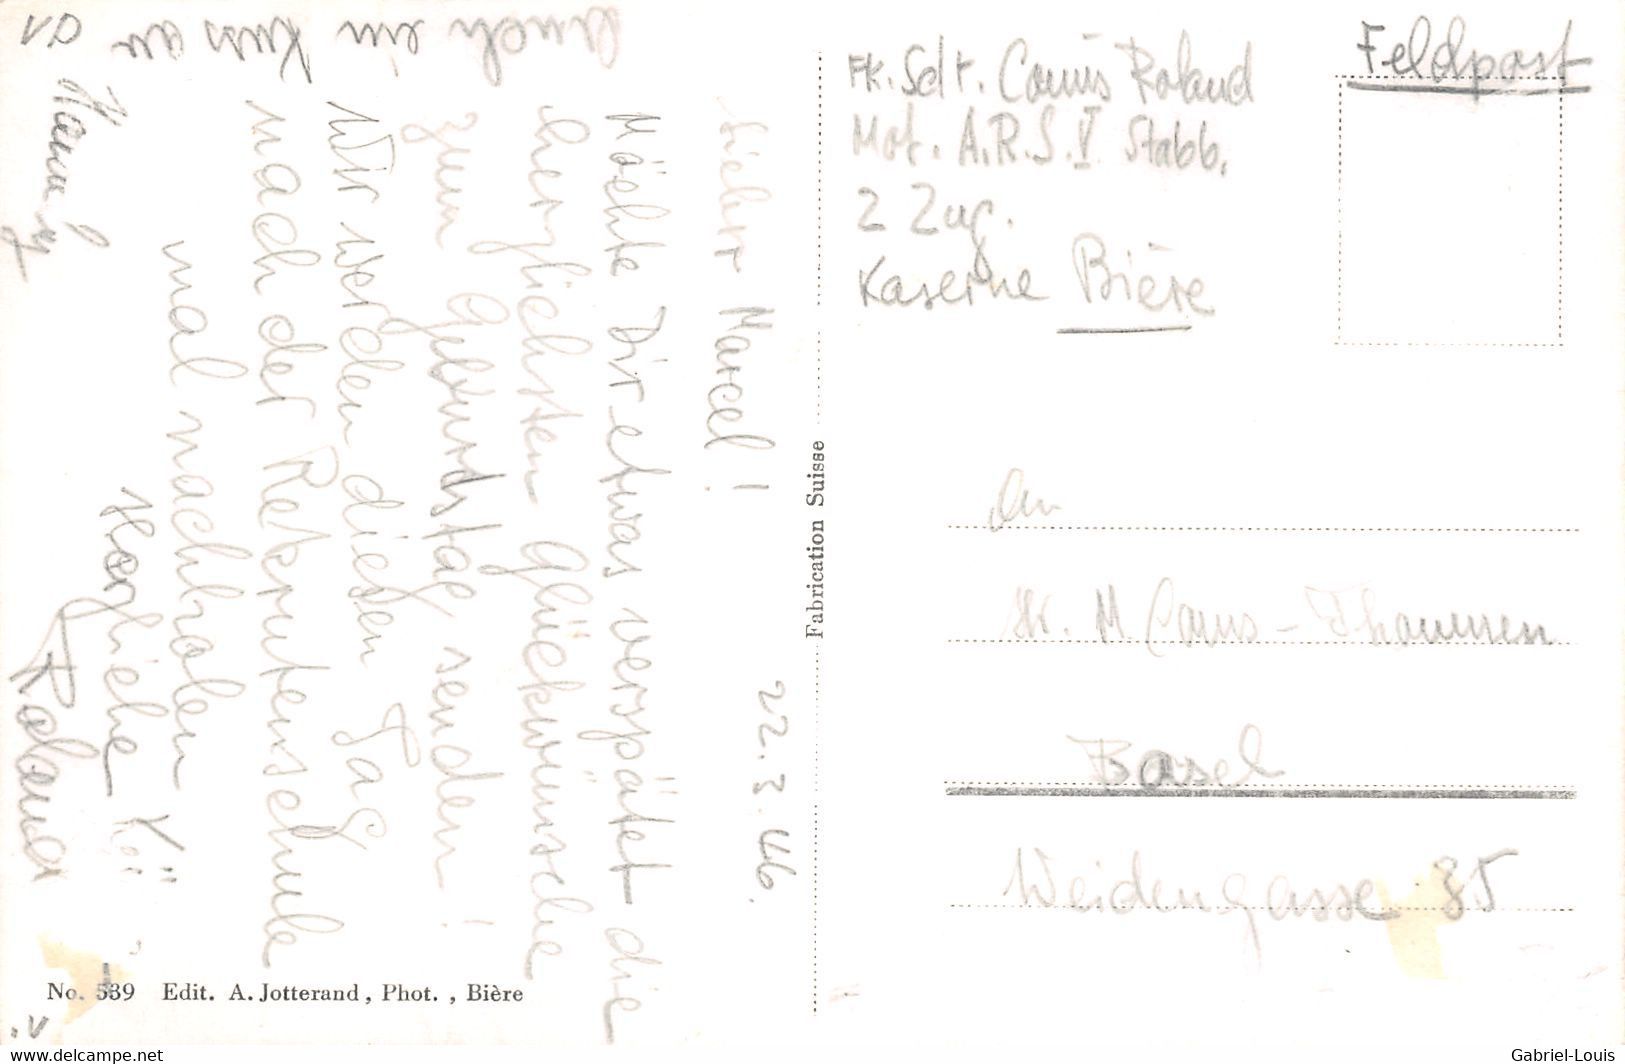 Feldpost
FK. Sdt. Camis Roland
Mot. A.R.S. V Stabb.
2 Zug.
Kaserne Bière
An
Hr. M Camis - Thommen
Basel
Weidengasse 35
22.3.46.
Lieber Marcel!
Möchte Dir etwas verspätet die
herzlichsten Glückwünsche
zum Geburtstag senden!
Wir werden diesen Tag
nach der Rekrutenschule
mal nachholen
Herzliche
Roland
auch ein Kuss an
Fabrication Suisse
No. 539 Edit. A. Jotterand, Phot., Bière
www.delcampe.net
Gabriel-Louis